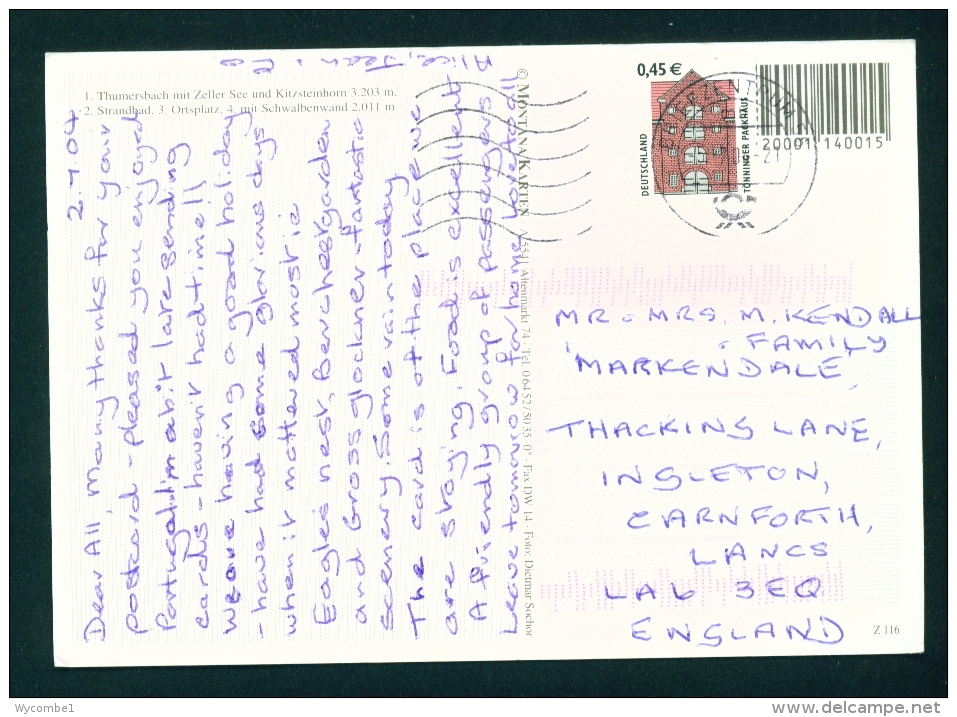 1. Thumersbach mit Zeller See und Kitzsteinhorn 3.203 m.
2. Strandbad, 3. Ortsplatz, 4. mit Schwalbenwand 2.011 m
2-7-04
Dear All, Many thanks for your
postcard - pleased you enjoyed
Portugal. I'm a bit late sending
cards - haven't had time!!
We are having a good holiday
- have had some glorious days
when it mattered most ie
Eagles nest, Berchestgarden
and Gross glockner - fantastic
scenery. Some rain today
The card is of the place we
are staying. Food is excellent
A friendly group of passengers
Leave tomorrow for home. Love to all
Alice, Jean
© MONTANA KARTEN · A-5541 Altenmarkt 74 · Tel. 06452/5035 0* · Fax DW 14 · Foto: Dietmar Sochor
0,45 €
DEUTSCHLAND
TÖNNINGER PACKHAUS
BRIEFZENTRUM
-21
20001 140015
MR & MRS. M. KENDALL
& FAMILY
'MARKENDALE'
THACKING LANE,
INGLETON,
CARNFORTH,
LANCS
LA6 3EQ
ENGLAND
Z 116
Wycombe1